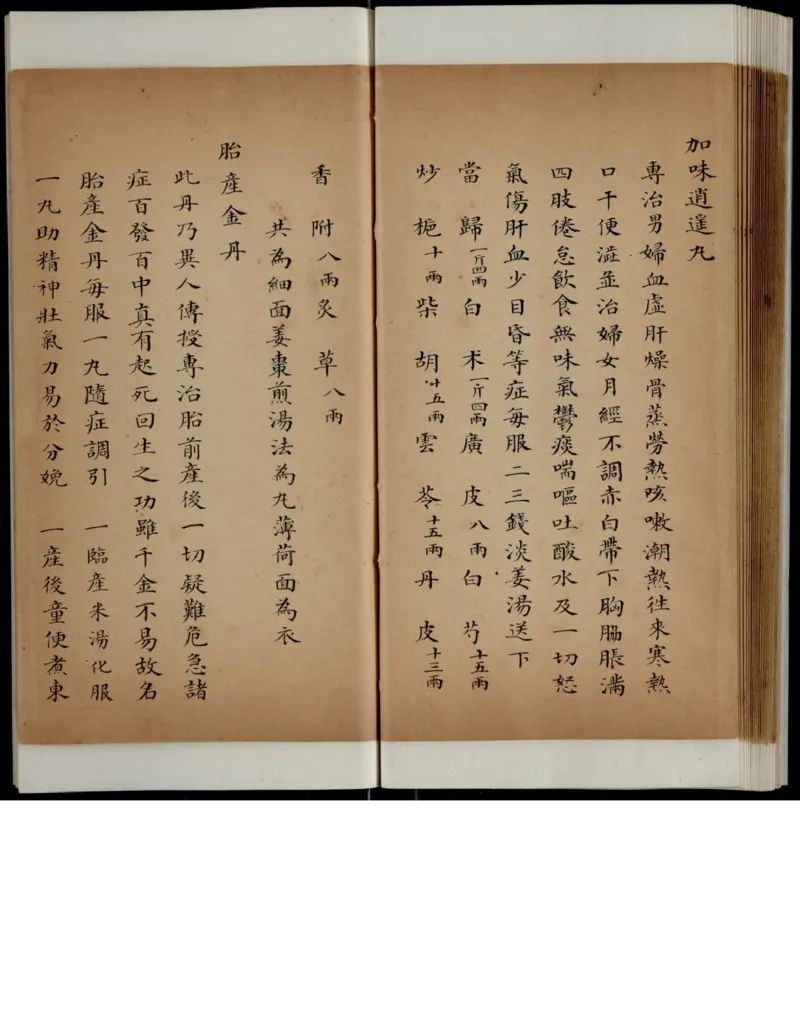 加味逍遥丸
專治男婦血虛肝燥骨蒸勞熱咳嗽潮熱徃來寒熱
口干便澁並治婦女月經不調赤白帶下胸脇脹滿
四肢倦怠飲食無味氣鬱痰喘嘔吐酸水及一切怒
氣傷肝血少目昏等症每服二三錢淡姜湯送下
當歸一斤四兩白术一斤四兩廣皮八兩白芍十五兩
炒梔十兩柴胡十五兩雲苓十五兩丹皮十三兩
香附八兩炙草八兩
共為細面姜棗煎湯法為丸薄荷面為衣
胎產金丹
此丹乃異人傳授專治胎前產後一切疑難危急諸
症百發百中真有起死回生之功雖千金不易故名
胎產金丹每服一丸隨症調引 一臨產米湯化服
一丸助精神壯氣力易於分娩 一產後童便煮東